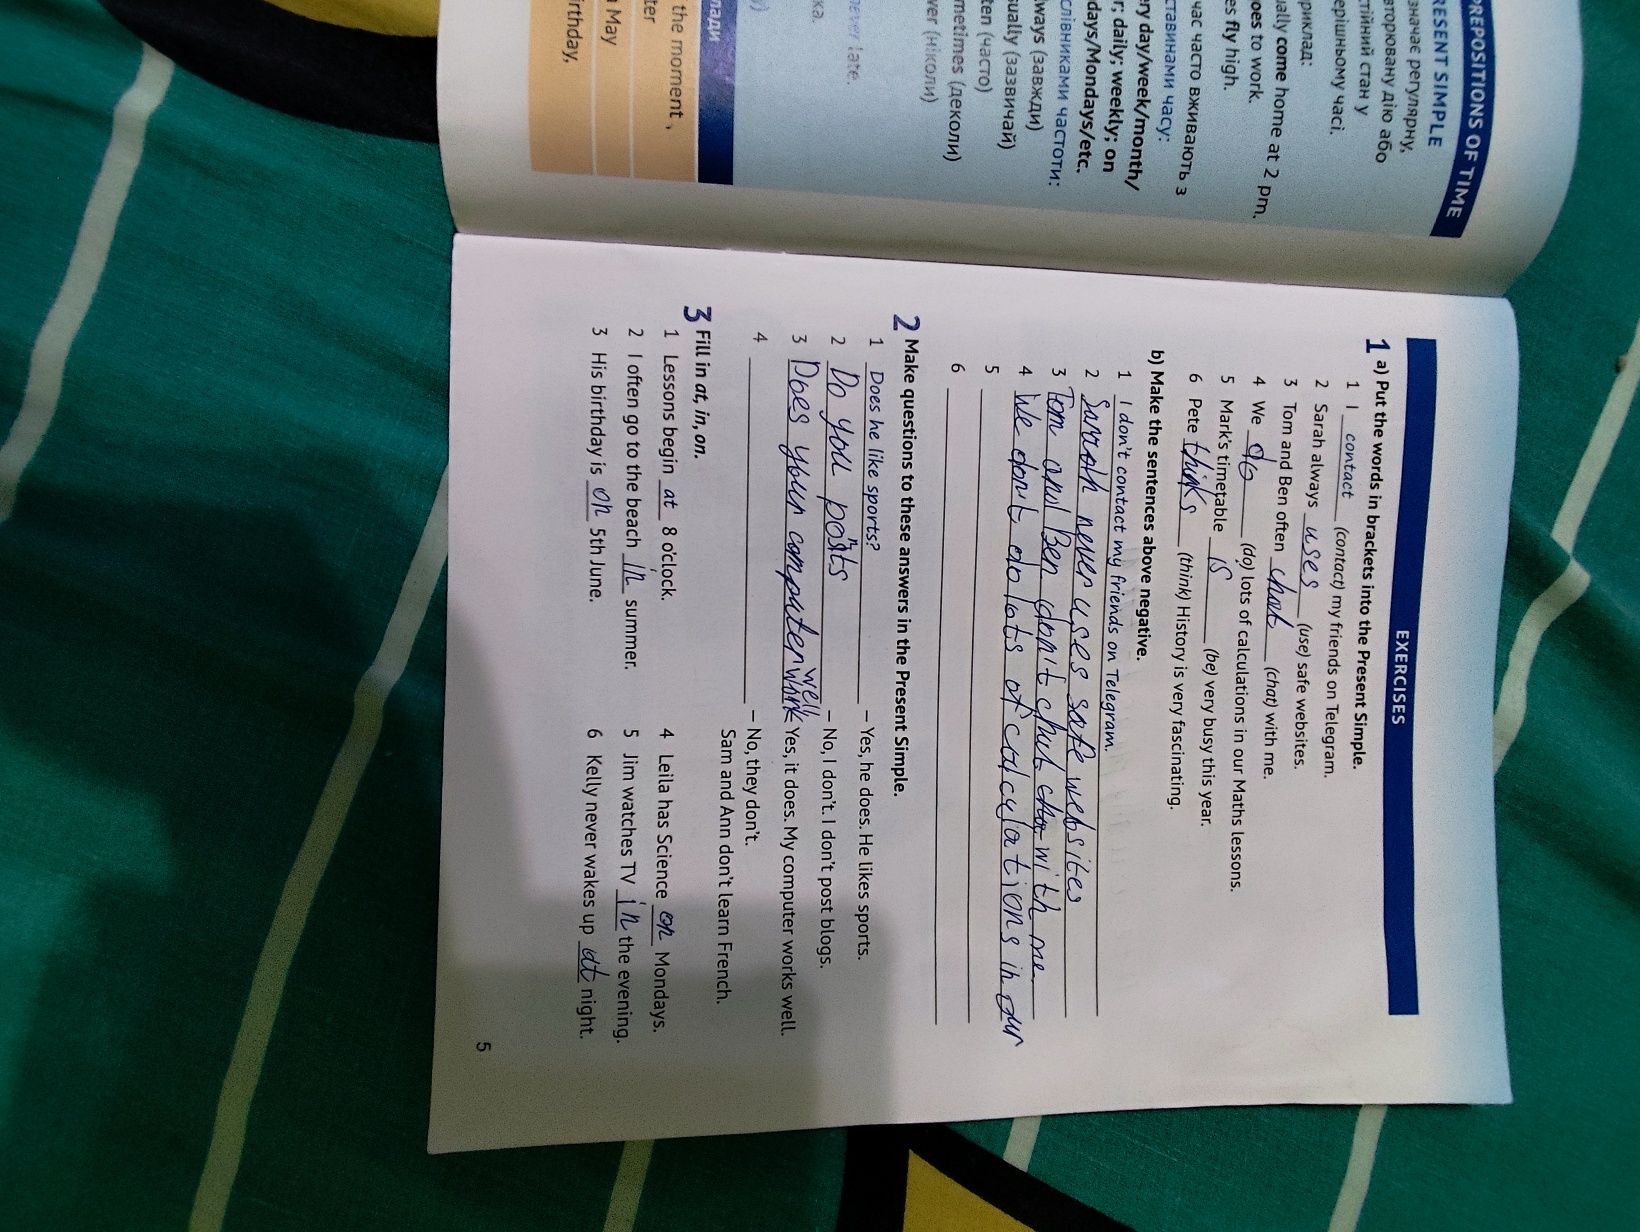 PREPOSITIONS OF TIME
RESENT SIMPLE
значає регулярну,
вторювану дію або
стійний стан у
ерішньому часі.
риклад:
ually come home at 2 pm.
oes to work.
es fly high.
час часто вживають з
ставинами часу:
ry day/week/month/
r; daily; weekly; on
days/Mondays/etc.
слівниками частоти:
lways (завжди)
sually (зазвичай)
ten (часто)
metimes (деколи)
ver (ніколи)
never late.
ка.
лади
the moment ,
ter
n May
irthday,
EXERCISES
1 a) Put the words in brackets into the Present Simple.
1 I contact (contact) my friends on Telegram.
2 Sarah always uses (use) safe websites.
3 Tom and Ben often chat (chat) with me.
4 We do (do) lots of calculations in our Maths lessons.
5 Mark's timetable is (be) very busy this year.
6 Pete thinks (think) History is very fascinating.
b) Make the sentences above negative.
1 I don't contact my friends on Telegram.
2 Sarah never uses safe websites
3 Tom and Ben don't chat with me
4 We don't do lots of calculations in our
5
6
2 Make questions to these answers in the Present Simple.
1 Does he like sports? – Yes, he does. He likes sports.
2 Do you posts – No, I don't. I don't post blogs.
3 Does your computer work well Yes, it does. My computer works well.
4 – No, they don't.
Sam and Ann don't learn French.
3 Fill in at, in, on.
1 Lessons begin at 8 o'clock.
2 I often go to the beach in summer.
3 His birthday is on 5th June.
4 Leila has Science on Mondays.
5 Jim watches TV in the evening.
6 Kelly never wakes up at night.
5